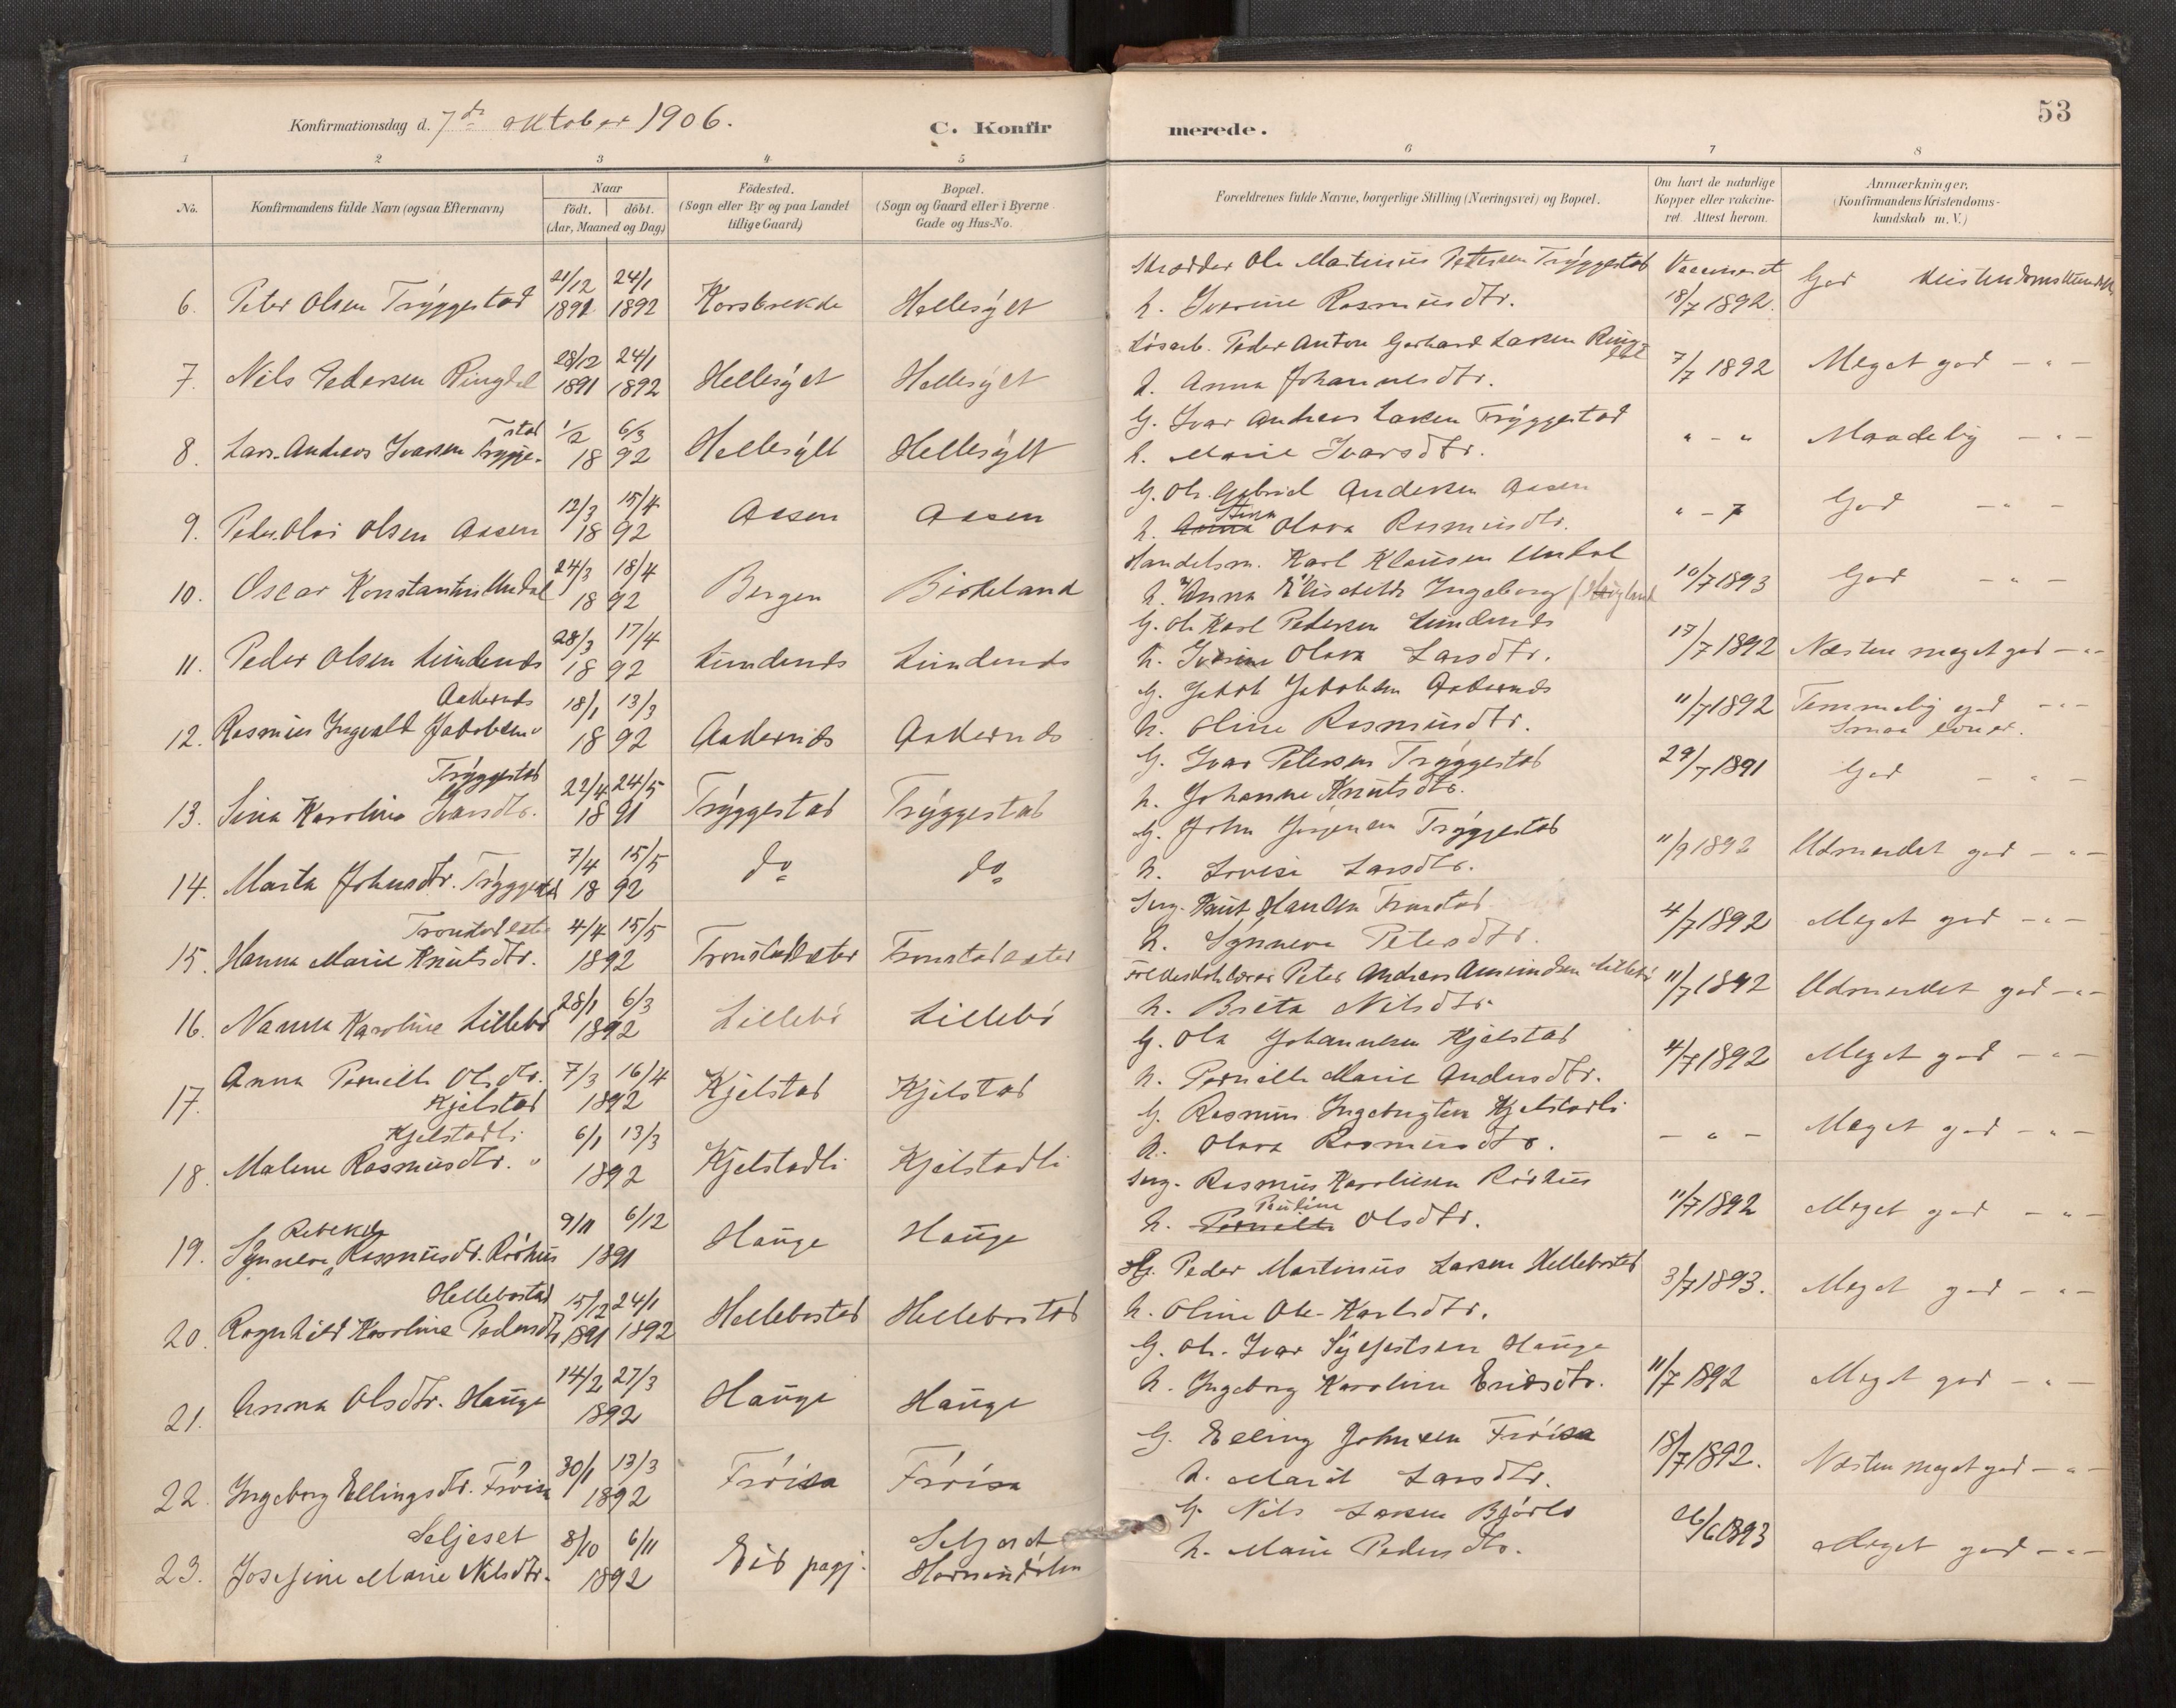 Konfirmationsdag d. 7de oktober 1906.
C. Konfir
merede.
53
1 2 3 4 5 6 7 8
No.
Konfirmandens fulde Navn (ogsaa Efternavn)
Naar
födt. döbt.
(Aar, Maaned og Dag)
Födested.
(Sogn eller By og paa Landet
tillige Gaard)
Bopæl.
(Sogn og Gaard eller i Byerne
Gade og Hus-No.
Forældrenes fulde Navne, borgerlige Stilling (Næringsvei) og Bopæl.
Om havt de naturlige
Kopper eller vakcine-
ret. Attest herom.
Anmærkninger.
(Konfirmandens Kristendoms-
kundskab m. V.)
21/12 24/1 Skrædder Ole Martinus Petersen Tryggestad Vaccineret
6. Peter Olsen Tryggestad 1891 1892 Korsbrekke Hellesylt h. Ivarine Rasmusdtr. 18/7 1892. God Kristendomskundsk
28/12 24/1 Løsarb. Peder Anton Gerhard Larsen Ringdal
7. Nils Pedersen Ringdal 1891 1892 Hellesylt Hellesylt h. Anna Johannesdtr. 7/7 1892 Meget god - " -
stad 1/2 6/3 G. Ivar Andreas Larsen Tryggestad
8. Lars Andreas Ivarsen Trygge- 18 92 Hellesylt Hellesylt h. Marie Ivarsdtr. " - " Maadelig - " -
12/3 15/4 G. Ole Gabriel Andersen Aasen
9. Peder Olai Olsen Aasen 18 92 Aasen Aasen h. Anna Stina Olava Rasmusdtr. God - " -
24/3 18/4 Handelsm. Karl Klausen Undal
10. Oscar Konstantin Undal 18 92 Bergen Birkeland h. Anna Elisabeth Ingeborg 10/7 1893 God - " -
28/3 17/4 G. Ole Karl Pedersen Lundenes
11. Peder Olsen Lundenes 18 92 Lundenes Lundenes h. Ivarine Olava Larsdtr. 17/7 1892 Næsten meget god - " -
Aakernes 18/1 13/3 G. Jakob Jakobsen Aakernes
12. Rasmus Ingvald Jakobsen " 18 92 Aakernes Aakernes h. Oline Rasmusdtr. 11/7 1892 Temmelig god - " -
Smaa evner.
Tryggestad 22/4 24/5 G. Ivar Petersen Tryggestad
13. Sina Karoline Ivarsdtr. 18 91 Tryggestad Tryggestad h. Johanne Knutsdtr. 29/7 1891 God - " -
7/4 15/5 G. John Jørgensen Tryggestad
14. Marta Johnsdtr. Tryggestad 18 92 do do h. Lovise Larsdtr. 11/7 1892 Udmerket god - " -
Tronstadsæter 4/4 15/5 Knut Hansen Tronstad
15. Hanna Marie Knutsdtr. 1892 Tronstadsæter Tronstadsæter h. Synneve Petersdtr. 4/7 1892 Meget god - " -
28/1 6/3 Folkeskolelærer Peter Andreas Amundsen Lillebø
16. Nanna Karoline Lillebø 1892 Lillebø Lillebø h. Brita Nilsdtr. 11/7 1892 Udmerket god - " -
Anna Pernille Olsdtr. 7/3 16/4 G. Ola Johannesen Kjelstad
17. Kjelstad 1892 Kjelstad Kjelstad h. Pernille Marie Andersdtr. 4/7 1892 Meget god - " -
Kjelstadli 6/1 13/3 G. Rasmus Ingebrigtsen Kjelstadli
18. Malene Rasmusdtr. " 1892 Kjelstadli Kjelstadli h. Olava Rasmusdtr. - " - Meget god - " -
Rebekka 9/11 6/12 Rasmus Karolusen Rørhus
19. Synneve Rasmusdtr. Rørhus 1891 Hauge Hauge h. Pernille Pauline Olsdtr. 11/7 1892 Meget god - " -
Hellebostad 15/12 24/1 G. Peder Martinus Larsen Hellebostad
20. Ragnhild Karoline Pedersdtr 1891 1892 Hellebostad Hellebostad h. Oline Ole-Karlsdtr. 3/7 1893. Meget god - " -
14/2 27/3 G. Ole Ivar Syvertsen Hauge
21. Anna Olsdtr. Hauge 1892 Hauge Hauge h. Ingeborg Karoline Eriksdtr. 11/7 1892 Meget god - " -
30/1 13/3 G. Elling Johnsen Frøisa
22. Ingeborg Ellingsdtr. Frøisa 1892 Frøisa Frøisa h. Marit Larsdtr. 18/7 1892. Næsten meget god - " -
Seljeset 8/10 6/11 Seljeset G. Nils Larsen Bjørlo
23. Josefine Marie Nilsdtr. 1892 Eid pgj. Hornindalen h. Marie Pedersdtr. 26/6 1893 Meget god - " -